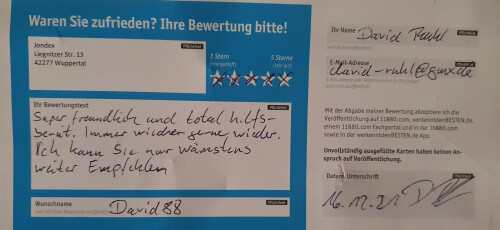 Waren Sie zufrieden? Ihre Bewertung bitte!
Jondex
Pflichtfeld
Liegnitzer Str. 13
42277 Wuppertal
1 Stern
(mangelhaft)
5 Sterne
(sehr gut)
Ihr Bewertungstext
Pflichtfeld
Super freundlich und total hilfs-
bereit. Immer wieder gerne wieder.
Ich kann Sie nur wärmstens
weiter Empfehlen
Wunschname
Pflichtfeld
David88
Ihr Name
Pflichtfeld
David
E-Mail-Adresse
david-ruhl@gmx.de
Mit der Abgabe meiner Bewertung akzeptiere ich die
Veröffentlichung auf 11880.com, werkenntdenBESTEN.de,
einem 11880.com Fachportal und in der 11880.com
sowie in der werkenntdenBESTEN.de App.
Unvollständig ausgefüllte Karten haben keinen An-
spruch auf Veröffentlichung.
Datum, Unterschrift
Pflichtfeld
16.11.21